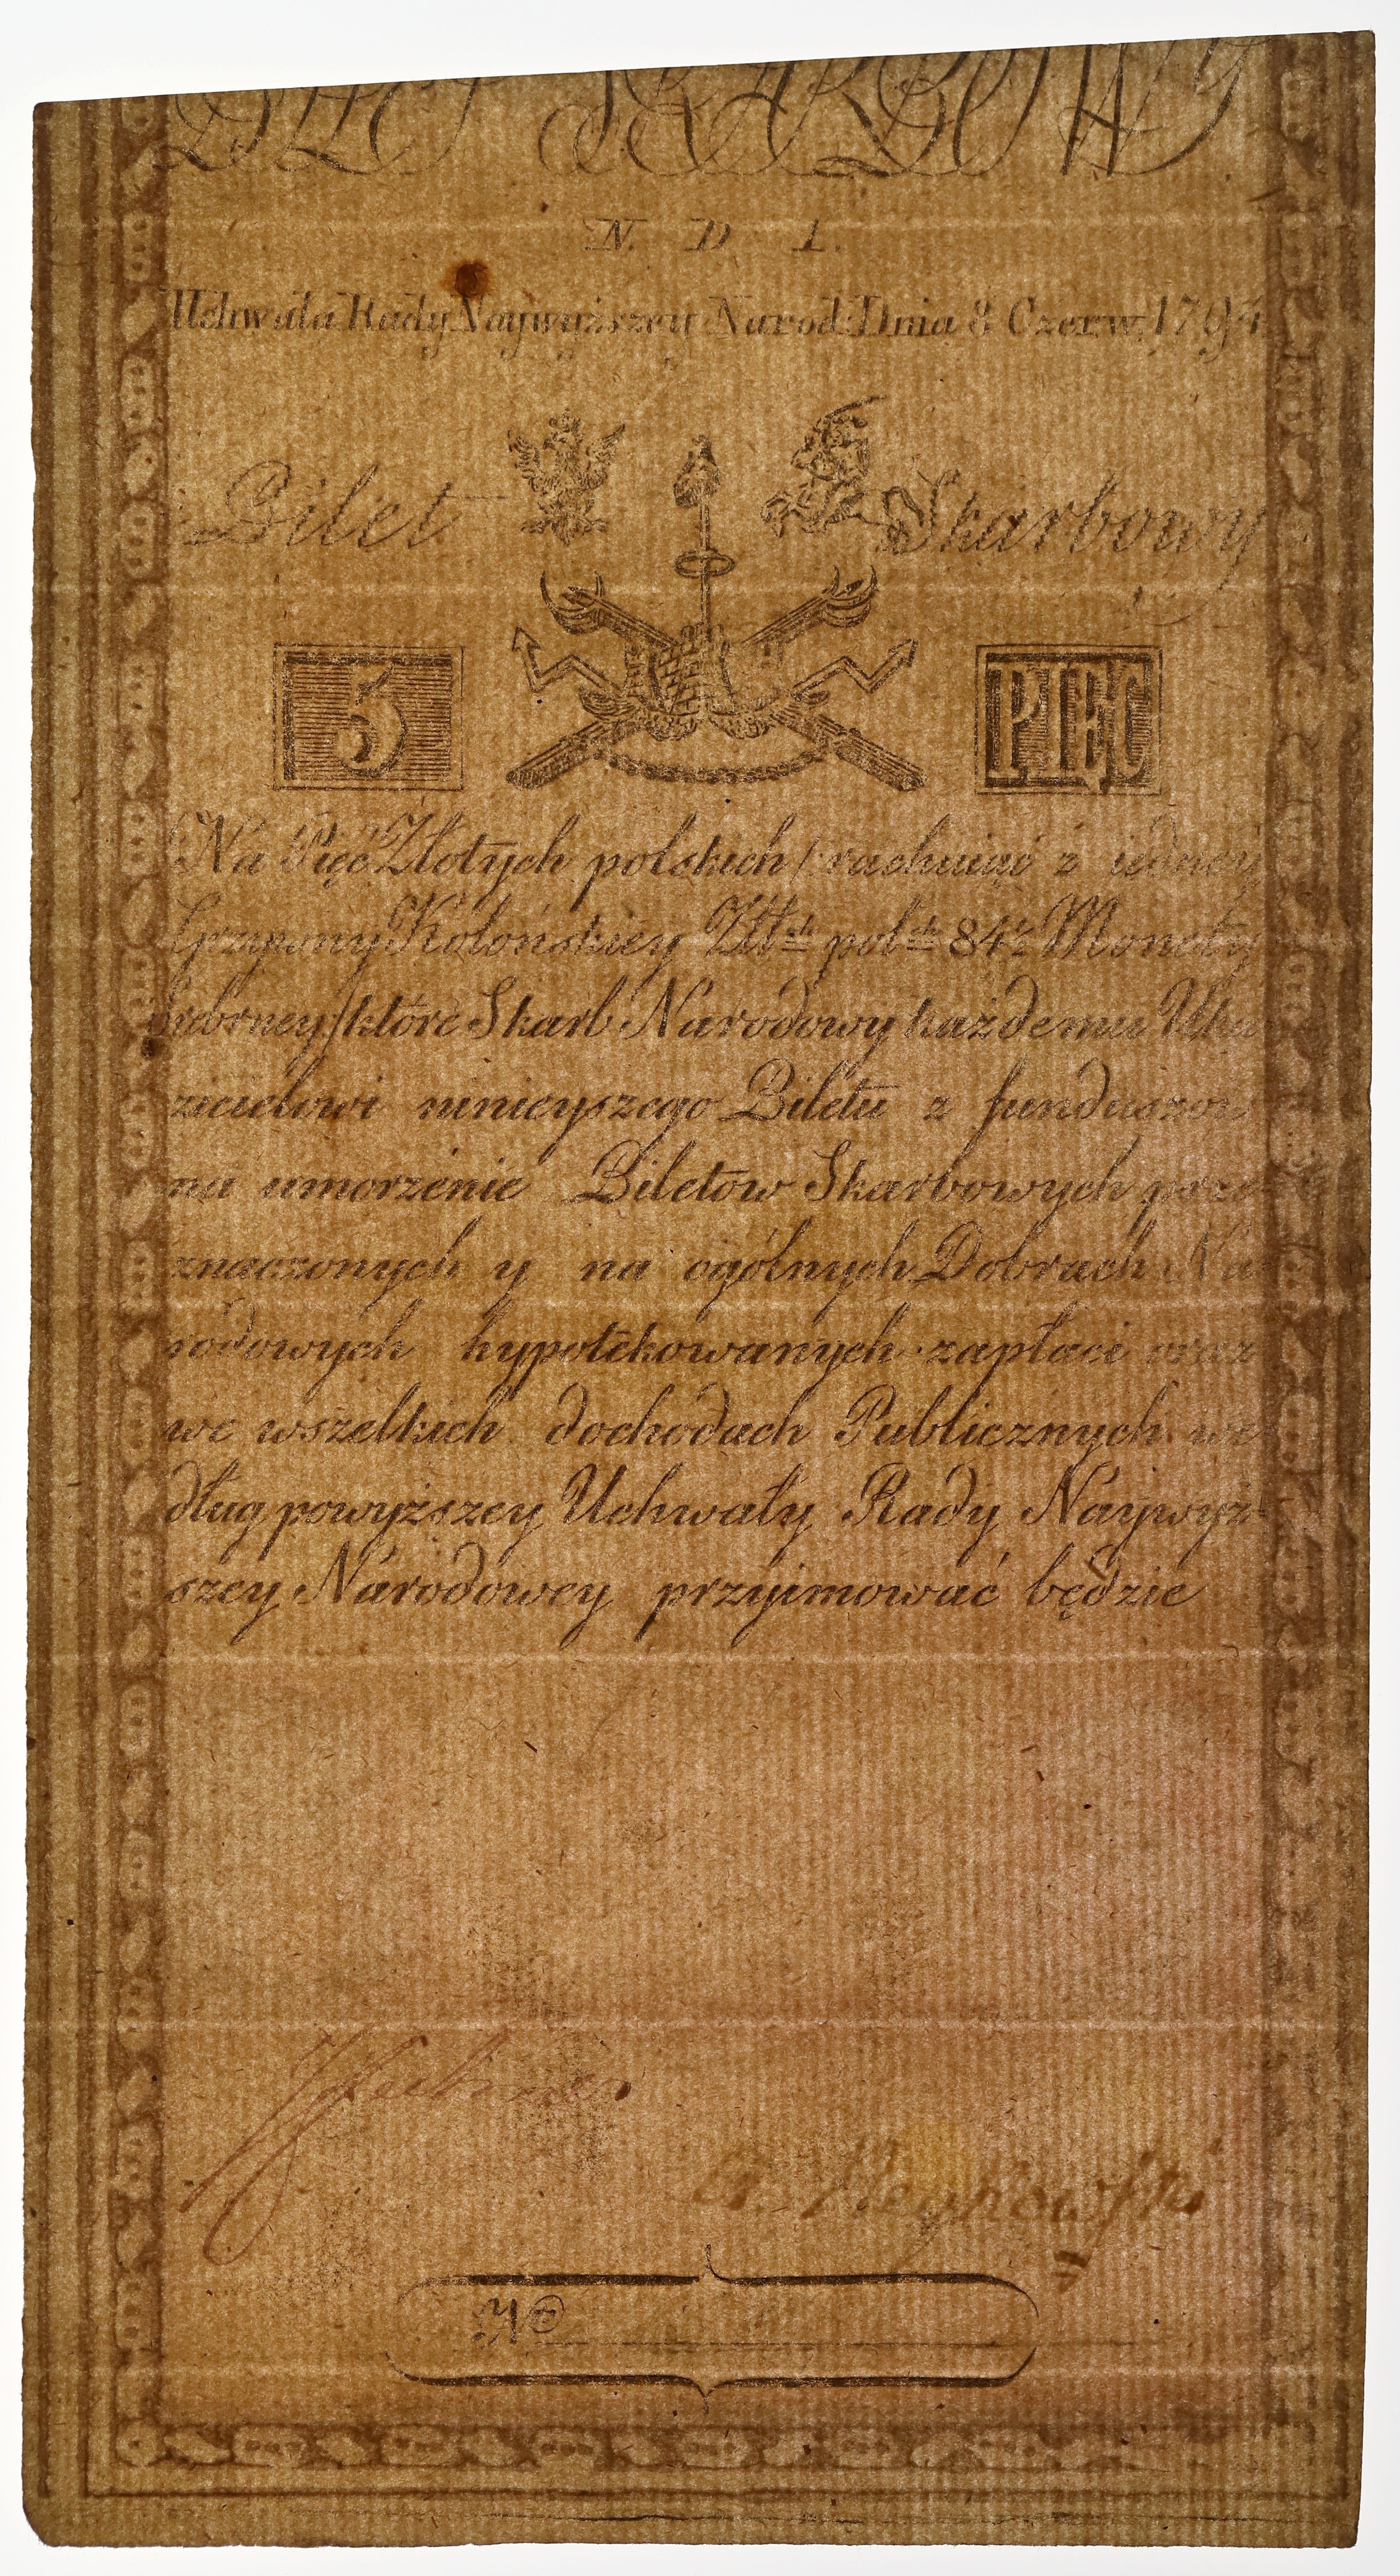 BILET SKARBOWY
N. D 1.
Uchwała Rady Naywyższey Narod: Dnia 8 Czerw. 1794
Bilet Skarbowy
5 PIĘC
Na Pięć Złotych polskich /: rachuiąć z iedney
Grzywny Kolońskiey Złł ch pol ch 84½ Monety
srebrney / które Skarb Narodowy każdemu Uka
zicielowi ninieyszego Biletu z funduszow
na umorzenie Biletow Skarbowych prze-
znaczonych y na ogólnych Dobrach Na
rodowych hypotēkowanych zapłaci oraz
we wszelkich dochodach Publicznych we
dług powyższey Uchwały Rady Naywyż-
szey Narodowey przyimować będzie